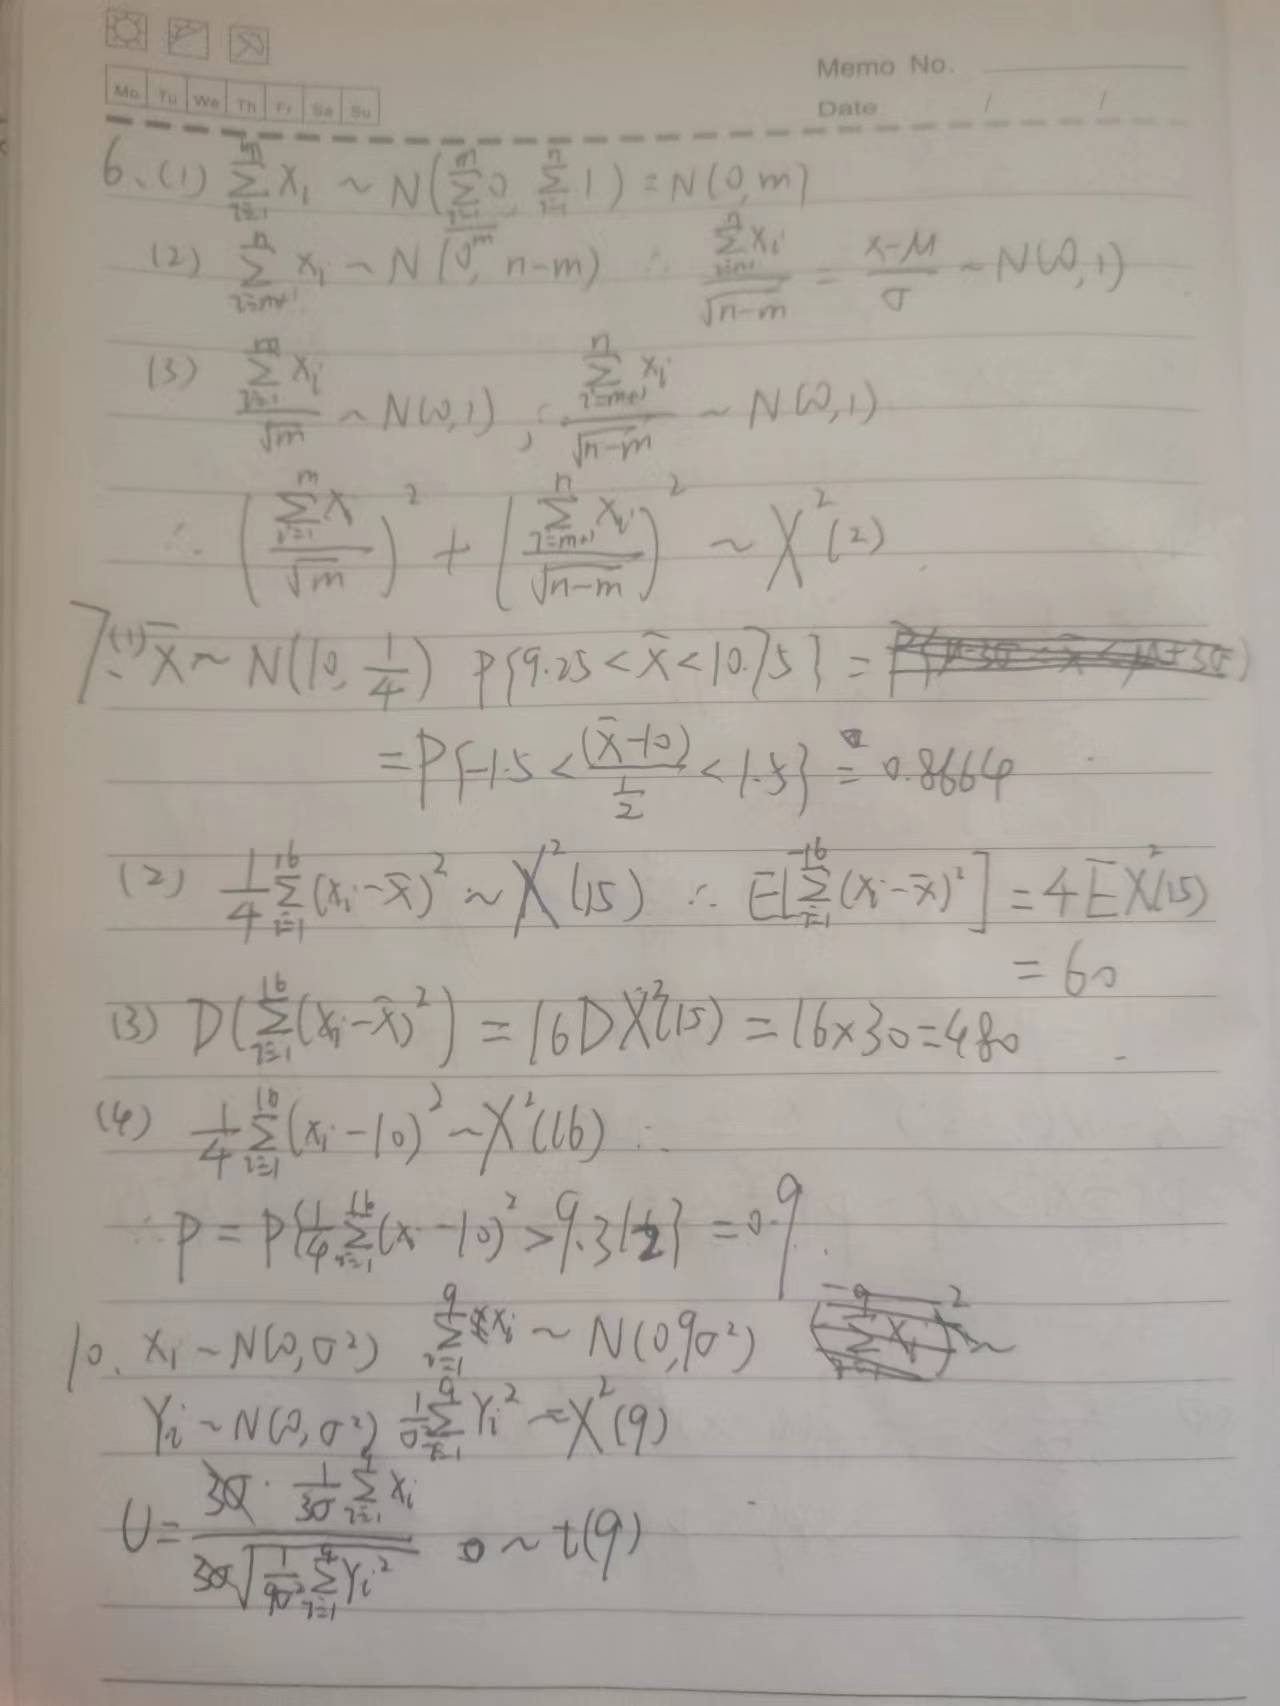 Memo No.
Mo Tu We Th Fr Sa Su
Date / /
6、(1) \sum_{i=1}^{m} X_i ~ N(\sum_{i=1}^{m} 0, \sum_{i=1}^{n} 1) = N(0, m)
(2) \sum_{i=m+1}^{n} X_i ~ N(0, n-m) ∴ \frac{\sum_{i=m+1}^{n} X_i}{\sqrt{n-m}} = \frac{x-μ}{σ} ~ N(0,1)
(3) \frac{\sum_{i=1}^{m} X_i}{\sqrt{m}} ~ N(0,1), \frac{\sum_{i=m+1}^{n} X_i}{\sqrt{n-m}} ~ N(0,1)
∴ (\frac{\sum_{i=1}^{m} X}{\sqrt{m}})^2 + (\frac{\sum_{i=m+1}^{n} X_i}{\sqrt{n-m}})^2 ~ X^2(2)
7、(1) \bar{X} ~ N(10, \frac{1}{4}) P{9.25 < \bar{X} < 10.75} =
= P{-1.5 < \frac{(\bar{X}-10)}{\frac{1}{2}} < 1.5} = 0.8664
(2) \frac{1}{4}\sum_{i=1}^{16} (X_i-\bar{X})^2 ~ X^2(15) ∴ E[\sum_{i=1}^{16} (X_i-\bar{X})^2] = 4EX^2(15)
= 60
(3) D(\sum_{i=1}^{16} (X_i-\bar{X})^2) = 16DX^2(15) = 16×30=480
(4) \frac{1}{4}\sum_{i=1}^{16} (X_i-10)^2 ~ X^2(16) ∴
∴ P = P{\frac{1}{4}\sum_{i=1}^{16} (X_i-10)^2 > 9.312} = 0.9
10. X_i ~ N(0,σ^2) \sum_{i=1}^{9} X_i ~ N(0,9σ^2) ~
Y_i ~ N(0,σ^2) \frac{1}{σ^2}\sum_{i=1}^{9} Y_i^2 = X^2(9)
U = \frac{3σ · \frac{1}{3σ}\sum_{i=1}^{9} X_i}{3σ\sqrt{\frac{1}{9σ^2}\sum_{i=1}^{9} Y_i^2}} ~ t(9)